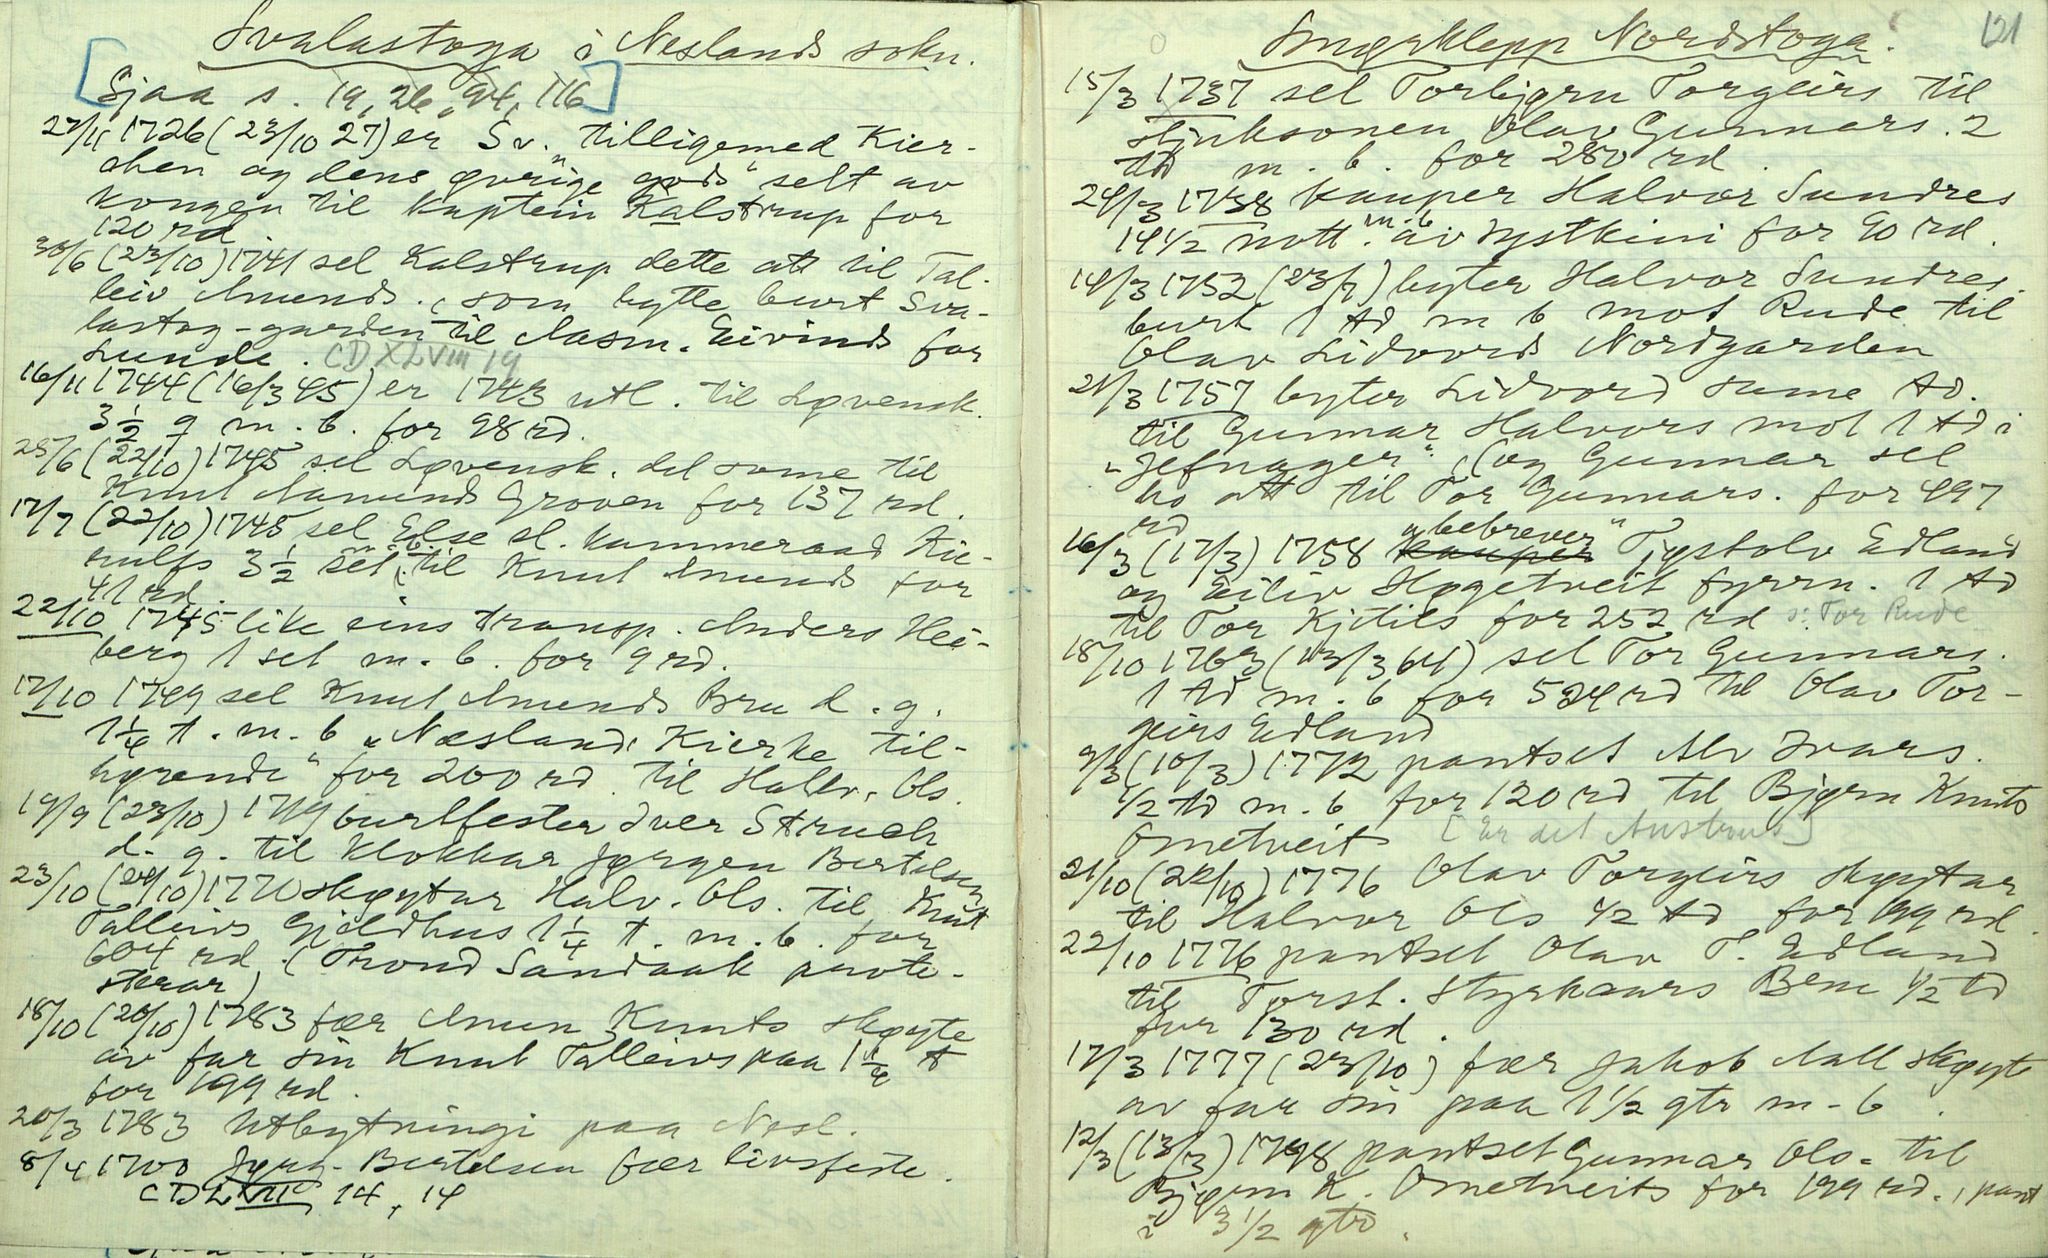 Svalastoga i Neslands sokn.
[Sjaa s. 19, 26, 94, 116]
27/11 1726 (23/10 27) er Sv. "tilligemed Kier-
chen og dens øvrige gods" selt av
kongen til kaptein Kalstrup for
120 rd.
30/6 (23/10) 1741 sel Kalstrup dette att til Tal-
leiv Amunds., som bytte burt Sva-
lastog-garden til Aasm. Eivinds for
Lunde. CDXLVIII 19
16/11 1744 (16/3 45) er 1743 utl. til Løvensk.
3 1/2 q m. b. for 98 rd.
25/6 (22/10) 1745 sel Løvensk. det some til
Knut Aamunds Groven for 137 rd.
17/7 (22/10) 1745 sel Else sl. kammeraad Kie-
rulfs 3 1/2 set. m. b. til Knut Amunds for
41 rd.
22/10 1745 like eins transp. Anders Hei-
berg 1 set m. b. for 9 rd.
17/10 1749 sel Knut Amunds Bru d. g.
1 1/4 t. m. b. "Næslands Kierke til-
hørende" for 200 rd. til Hallv. Ols.
19/9 (23/10) burtfester Iver Struch
d. g. til klokkar Jørgen Bertelsen
23/10 (24/10) 1770 skøytar Halv. Ols. til Knut
Talleivs Gjeldhus 1 1/4 t. m. b. for
604 rd. (Trond Sandaak prote-
sterar)
18/10 (20/10) 1783 fær Amun Knuts skøyte
av far sin Knut Talleivs paa 1 1/4 t
for 199 rd.
20/3 1783 Utbytningi paa Nesl.
8/4 1700 Jørg. Bertelsen fær livsfeste.
CDLVIII 14, 14
121
Smørklepp Nordstoga.
15/3 1737 sel Torbjørn Torgeirs til
stjuksonen Olav Gunnars. 2
td m. b. for 250 rd.
24/3 1738 kauper Halvor Sundres
14 1/2 nott. m. b. av systkini for 90 rd.
14/3 1752 (23/7) byter Halvor Sundres.
burt 1 td m b mot Rude til
Olav Lidvords Nordgarden
21/3 1757 byter Lidvord same td.
til Gunnar Halvors mot 1 td i
"Jefnager", (og Gunnar sel
ho att til Tor Gunnars. for 497
rd
16/3 (17/3) 1758 kauper "bebrever" Tjystolv Edland
og Eiliv Høgetveit fyrrn. 1 td
til Tor Kjetils for 252 rd s: Tor Rude
18/10 1763 (13/3 64) sel Tor Gunnars.
1 td m. b for 524 rd til Olav Tor-
geirs Edland
9/3 (10/3) 1772 pantset Alv Ivars.
1/2 td m. b for 120 rd til Bjørn Knuts
Ometveit [Er det Austhus]
21/10 (22/10) 1776 Olav Torgeirs skøytar
til Halvor Ols 1/2 td for 199 rd.
22/10 1776 pantset Olav T. Edland
til Torst. Styrkaars Bene 1/2 td
for 130 rd.
17/3 1777 (23/10) fær Jakob Aall skøyte
av far sin paa 1 1/2 qtr m. b.
12/3 (13/3) 1798 pantset Gunnar Ols. til
Bjørn K. Ometveits for 199 rd., pant
i 3 1/2 qtr.